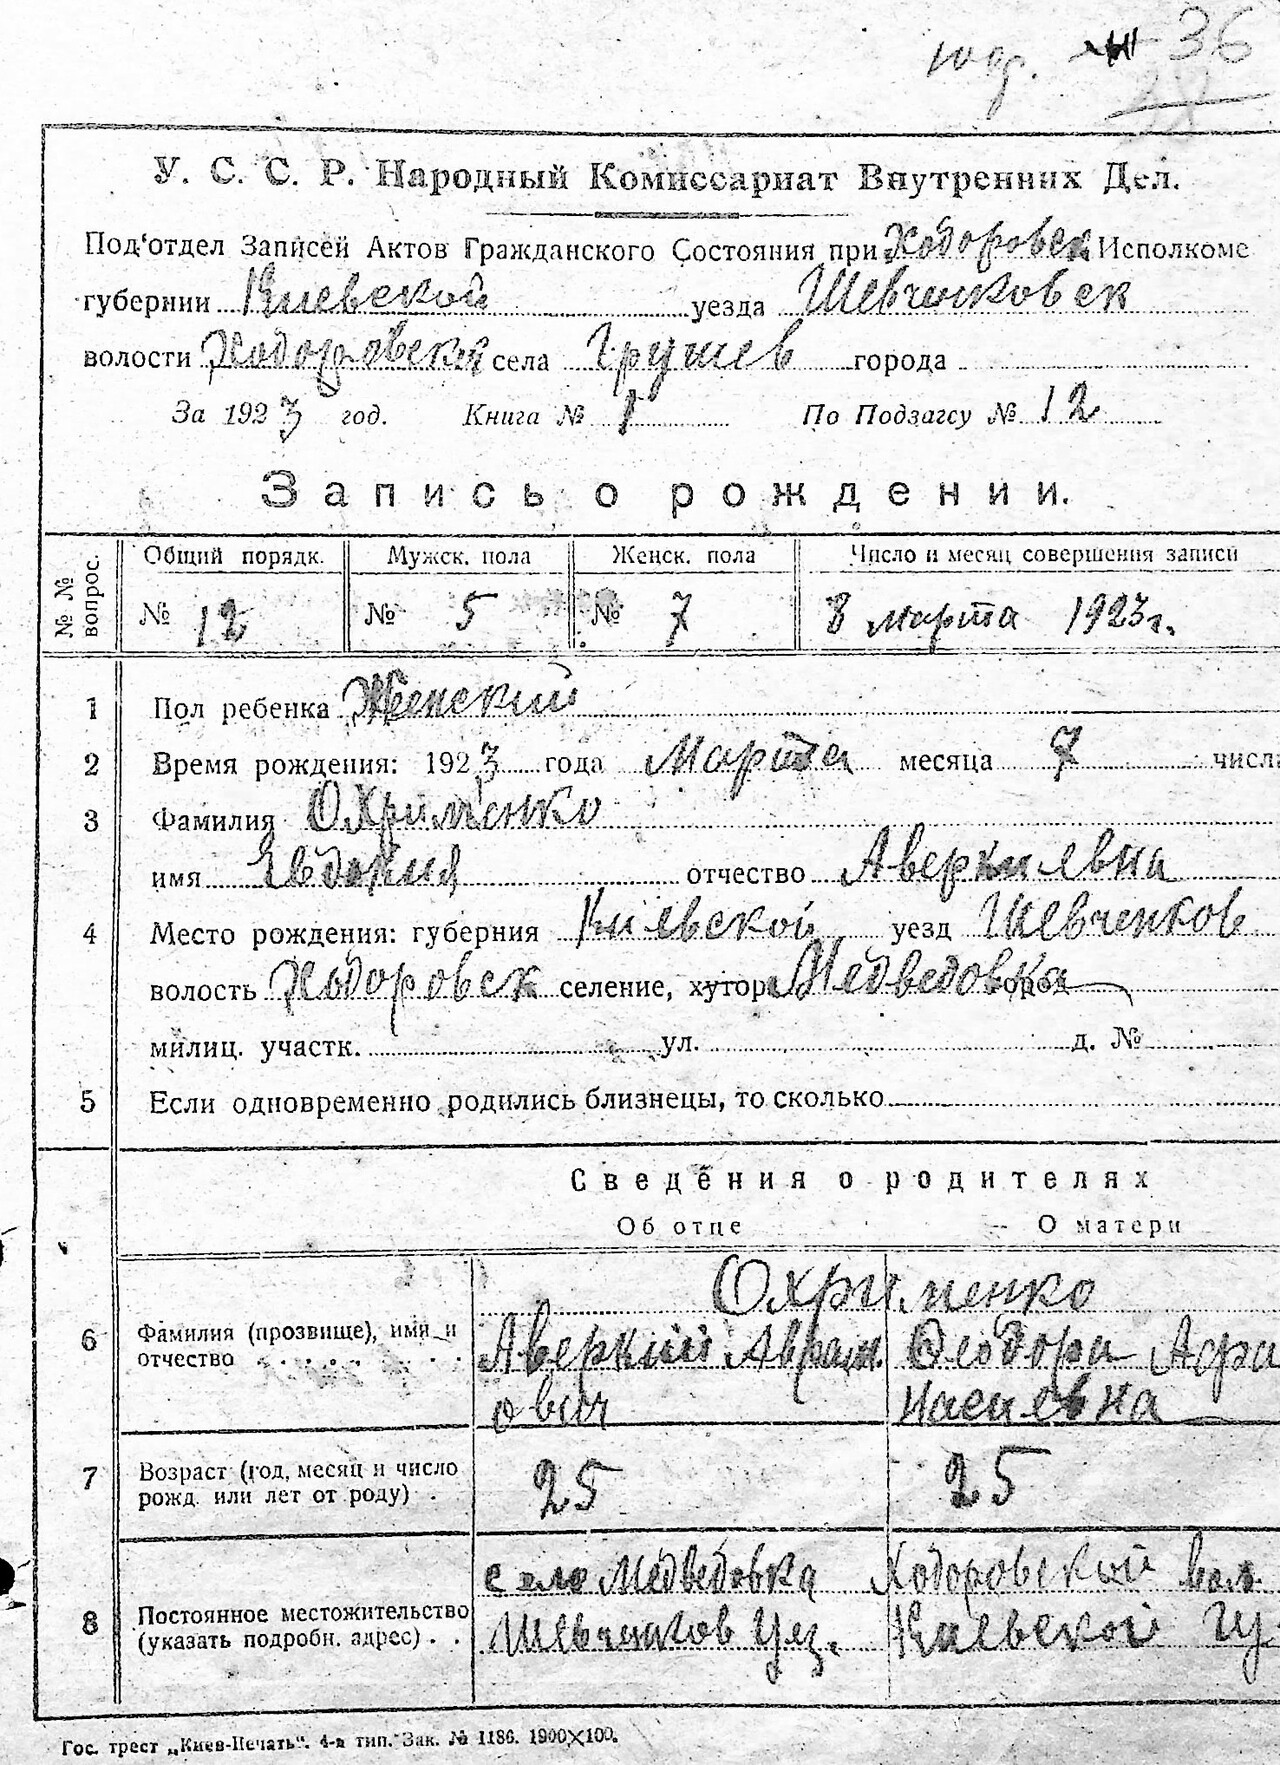 36
У. С. С. Р. Народный Комиссариат Внутренних Дел.
Под‘отдел Записей Актов Гражданского Состояния при Ходоровск Исполкоме
губернии Киевской уезда Шевченковск
волости Ходоровская села Грушев города
За 1923 год. Книга № 1 По Подзагсу № 12
Запись о рождении.
№ № вопрос. Общий порядк. Мужск. пола Женск. пола Число и месяц совершения записи
№ 12 № 5 № 7 8 марта 1923 г.
1 Пол ребенка Женский
2 Время рождения: 1923 года Марта месяца 7 числа
3 Фамилия Охрименко
имя Евдокия отчество Аверкиевна
4 Место рождения: губерния Киевской уезд Шевченков
волость Ходоровск селение, хутор Медведовка
милиц. участк. ул. д. №
5 Если одновременно родились близнецы, то сколько
Сведения о родителях
Об отце О матери
Охрименко
6 Фамилия (прозвище), имя и Аверкий Аврам. Феодора Афа
отчество ович насиевна
7 Возраст (год, месяц и число 25 25
рожд. или лет от роду) .
село Медведовка Ходоровской вол.
8 Постоянное местожительство Шевченков уез. Киевской гу
(указать подробн. адрес) . .
Гос. трест „Киев-Печать“. 4-я тип. Зак. № 1186. 1900×100.